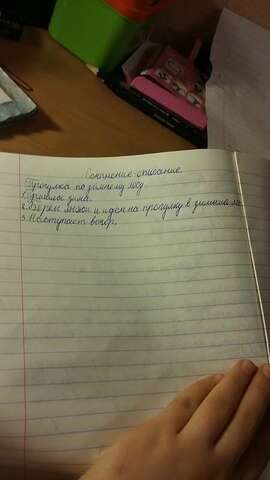 Сочинение-описание.
Прогулка по зимнему лесу.
1. Пришла зима.
2. Берем лыжи и идем на прогулку в зимний ле
3. Наступает вечер.